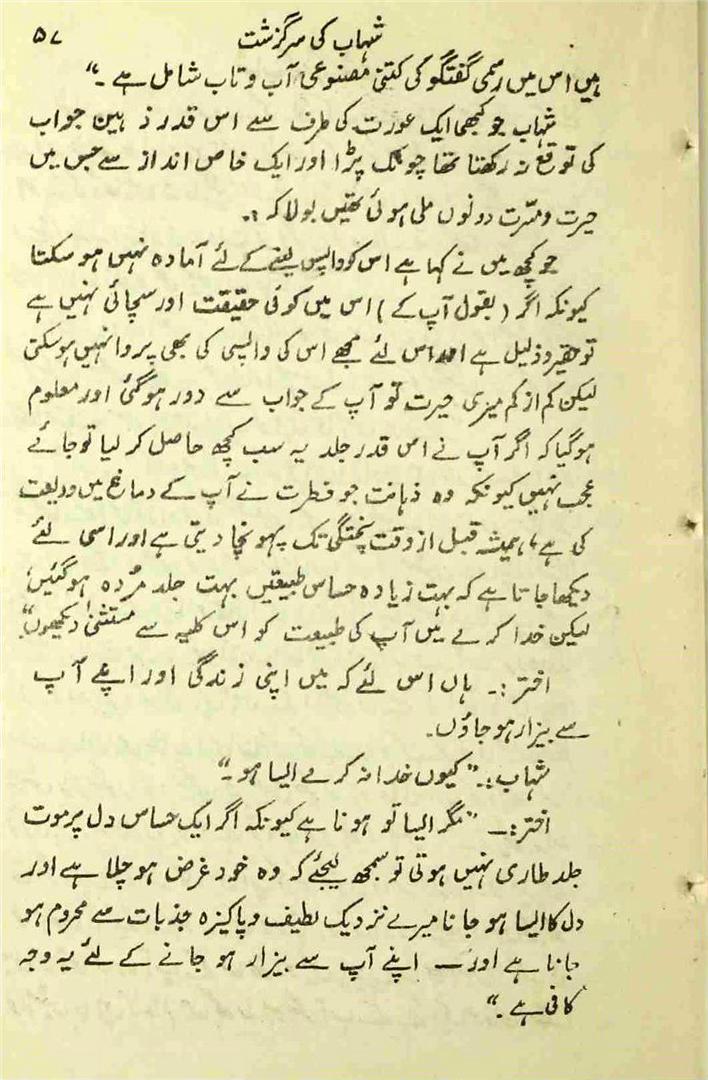 شہاب کی سرگزشت ۵۷
ہیں اس میں رسمی گفتگو کی کتنی مصنوعی آب و تاب شامل ہے ۔“
شہاب جو کبھی ایک عورت کی طرف سے اس قدر ذہین جواب
کی توقع نہ رکھتا تھا چونک پڑا اور ایک خاص انداز سے جس میں
حیرت و مسرت دونوں ملی ہوئی تھیں بولا کہ :۔
جو کچھ میں نے کہا ہے اس کو واپس لینے کے لئے آمادہ نہیں ہو سکتا
کیونکہ اگر ( بقول آپ کے ) اس میں کوئی حقیقت اور سچائی نہیں ہے
تو حقیر و ذلیل ہے اور اس لئے مجھے اس کی واپسی کی بھی پروا نہیں ہو سکتی
لیکن کم از کم میری حیرت تو آپ کے جواب سے دور ہو گئی اور معلوم
ہو گیا کہ اگر آپ نے اس قدر جلد یہ سب کچھ حاصل کر لیا تو جائے
عجب نہیں کیونکہ وہ ذہانت جو فطرت نے آپ کے دماغ میں ودیعت
کی ہے، ہمیشہ قبل از وقت پختگی تک پہونچا دیتی ہے اور اسی لئے
دیکھا جاتا ہے کہ بہت زیادہ حساس طبیعتیں بہت جلد مُردہ ہو گئیں،
لیکن خدا کرے میں آپ کی طبیعت کو اس کلیہ سے مستثنیٰ دیکھوں“
اختر :۔ ہاں اس لئے کہ میں اپنی زندگی اور اپنے آپ
سے بیزار ہو جاؤں۔
شہاب :۔ ”کیوں خدا نہ کرے ایسا ہو ۔“
اختر :۔ ”مگر ایسا تو ہونا ہے کیونکہ اگر ایک حساس دل پر موت
جلد طاری نہیں ہوتی تو سمجھ لیجئے کہ وہ خود غرض ہو چلا ہے اور
دل کا ایسا ہو جانا میرے نزدیک لطیف و پاکیزہ جذبات سے محروم ہو
جانا ہے اور — اپنے آپ سے بیزار ہو جانے کے لئے یہ وجہ
کافی ہے ۔“